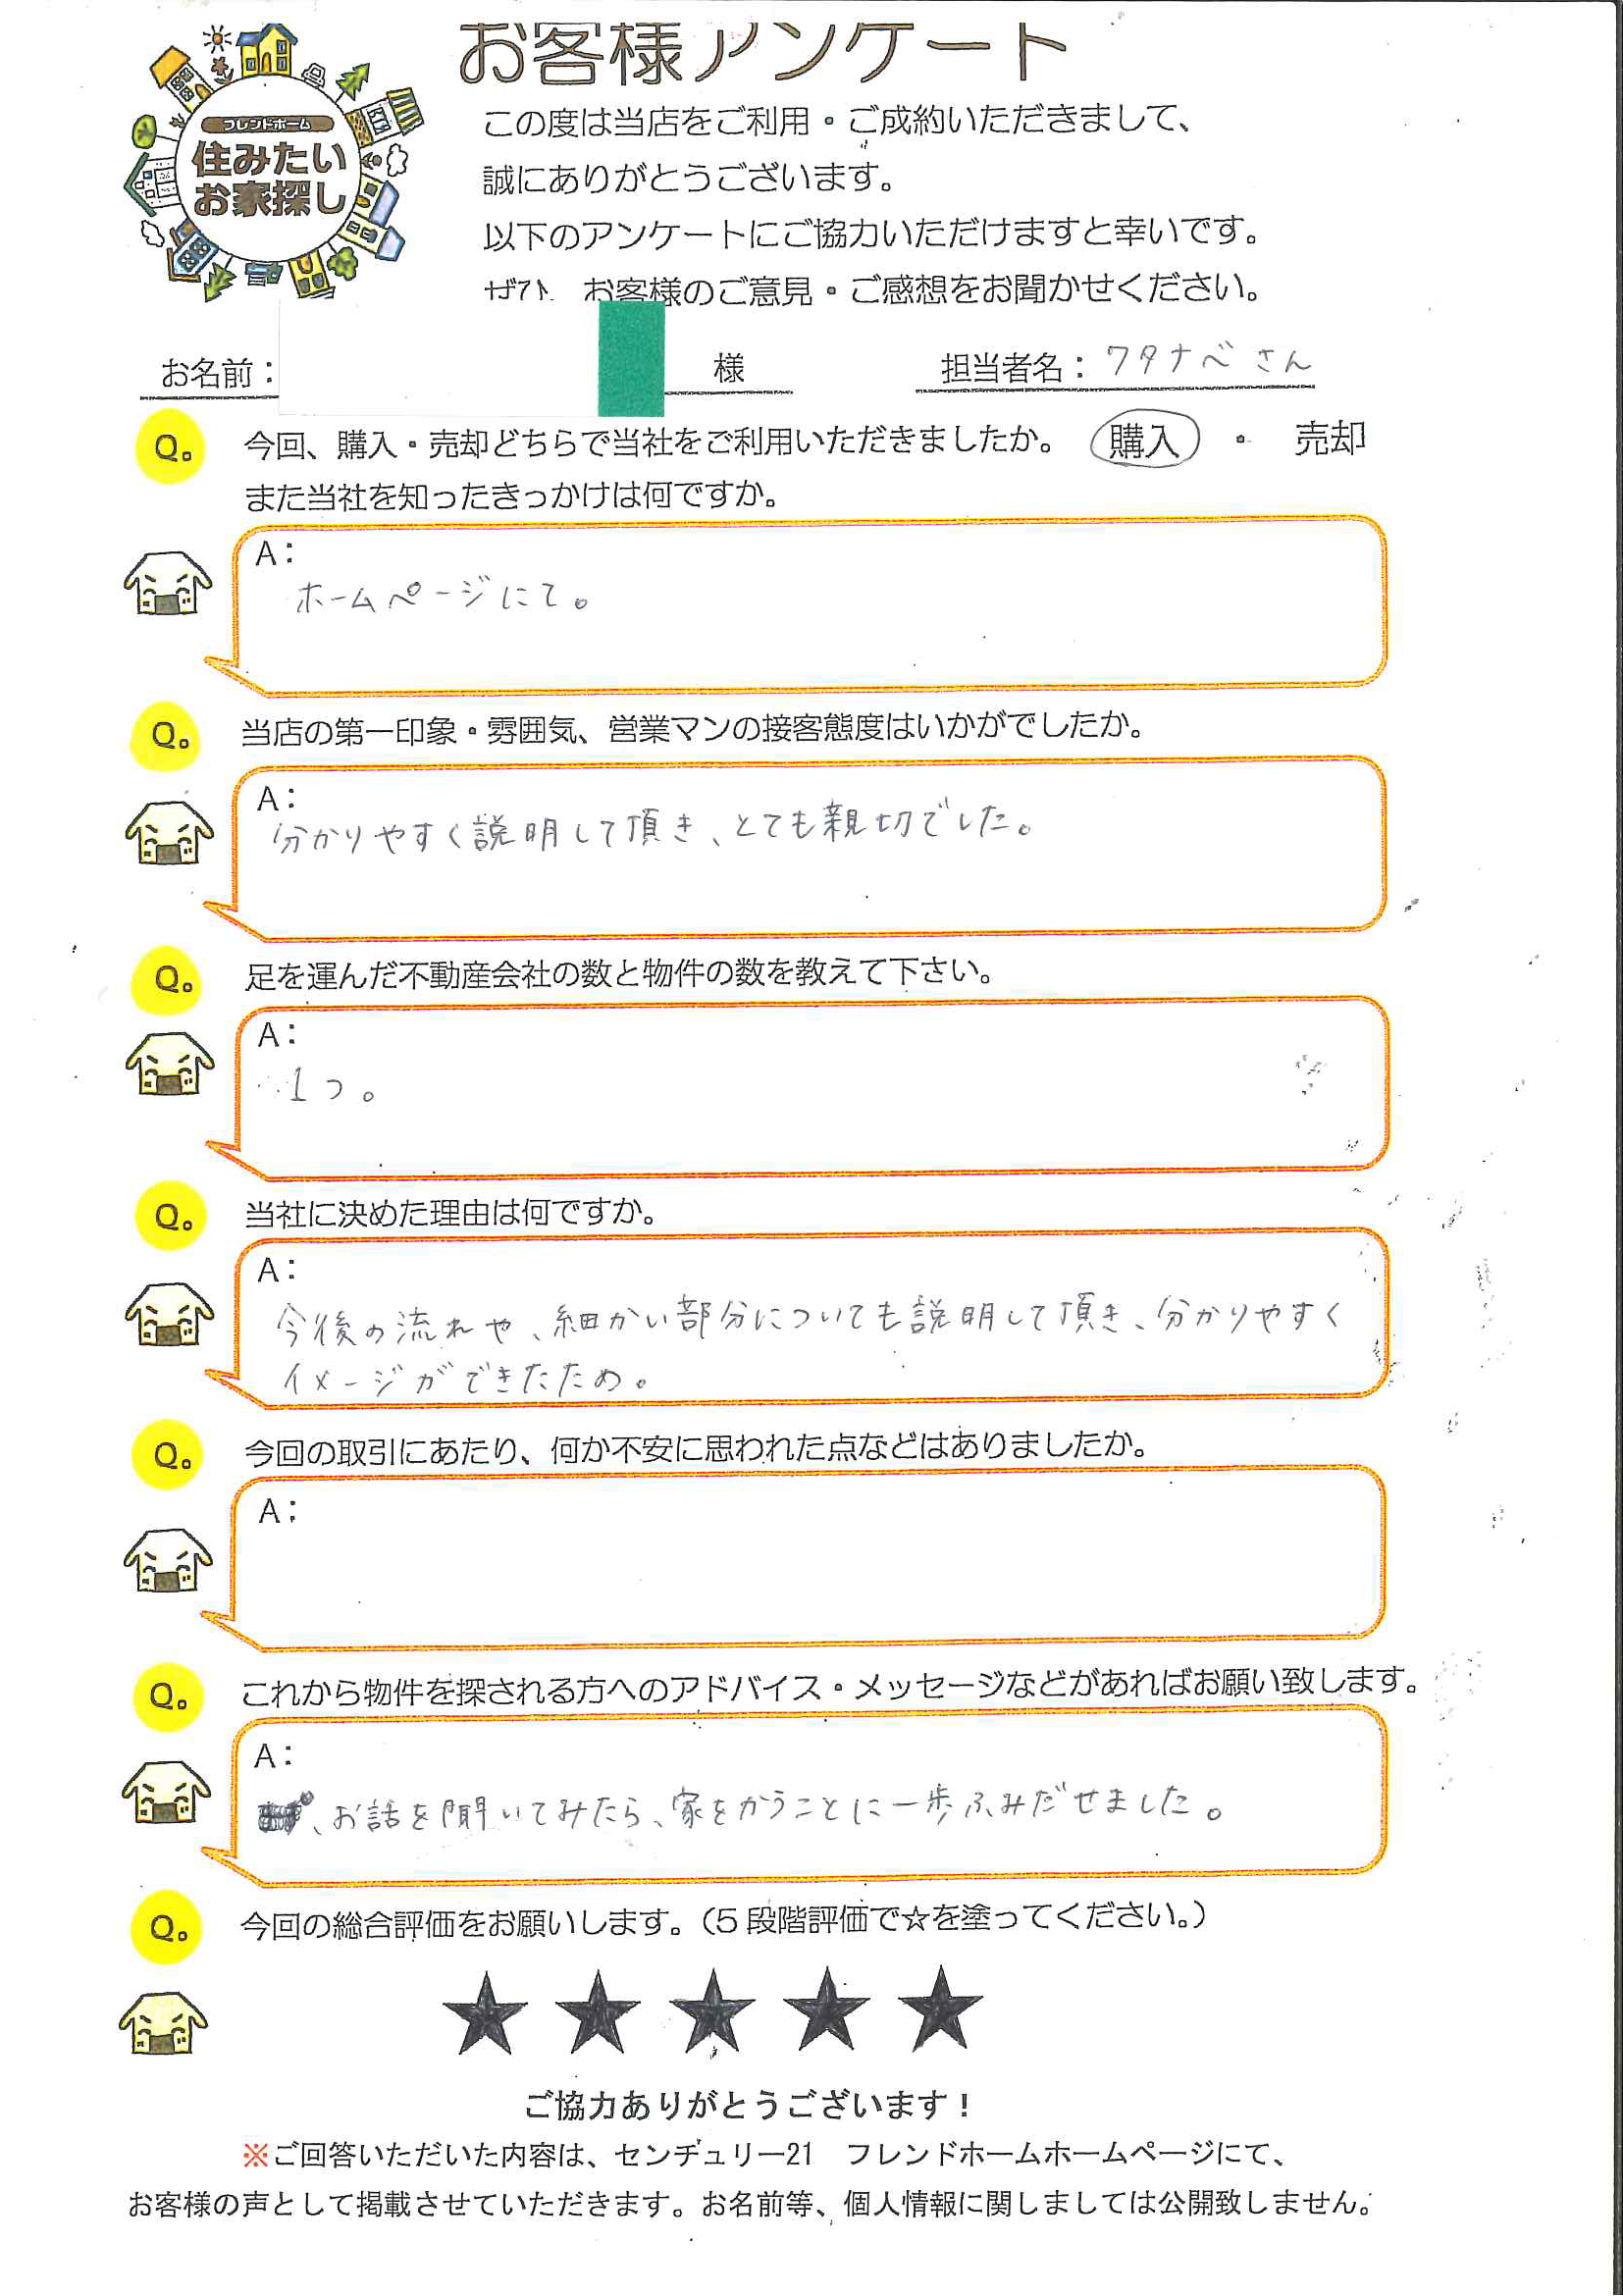 お客様アンケート
フレンドホーム
住みたい
お家探し
この度は当店をご利用・ご成約いただきまして、
誠にありがとうございます。
以下のアンケートにご協力いただけますと幸いです。
ぜひ、お客様のご意見・ご感想をお聞かせください。
お名前： 様 担当者名：ワタナベさん
Q. 今回、購入・売却どちらで当社をご利用いただきましたか。 購入 ・ 売却
また当社を知ったきっかけは何ですか。
A：
ホームページにて。
Q. 当店の第一印象・雰囲気、営業マンの接客態度はいかがでしたか。
A：
分かりやすく説明して頂き、とても親切でした。
Q. 足を運んだ不動産会社の数と物件の数を教えて下さい。
A：
1つ。
Q. 当社に決めた理由は何ですか。
A：
今後の流れや、細かい部分についても説明して頂き、分かりやすく
イメージができたため。
Q. 今回の取引にあたり、何か不安に思われた点などはありましたか。
A：
Q. これから物件を探される方へのアドバイス・メッセージなどがあればお願い致します。
A：
、お話を聞いてみたら、家をかうことに一歩ふみだせました。
Q. 今回の総合評価をお願いします。（5段階評価で☆を塗ってください。）
★ ★ ★ ★ ★
ご協力ありがとうございます！
※ご回答いただいた内容は、センチュリー21 フレンドホームホームページにて、
お客様の声として掲載させていただきます。お名前等、個人情報に関しましては公開致しません。